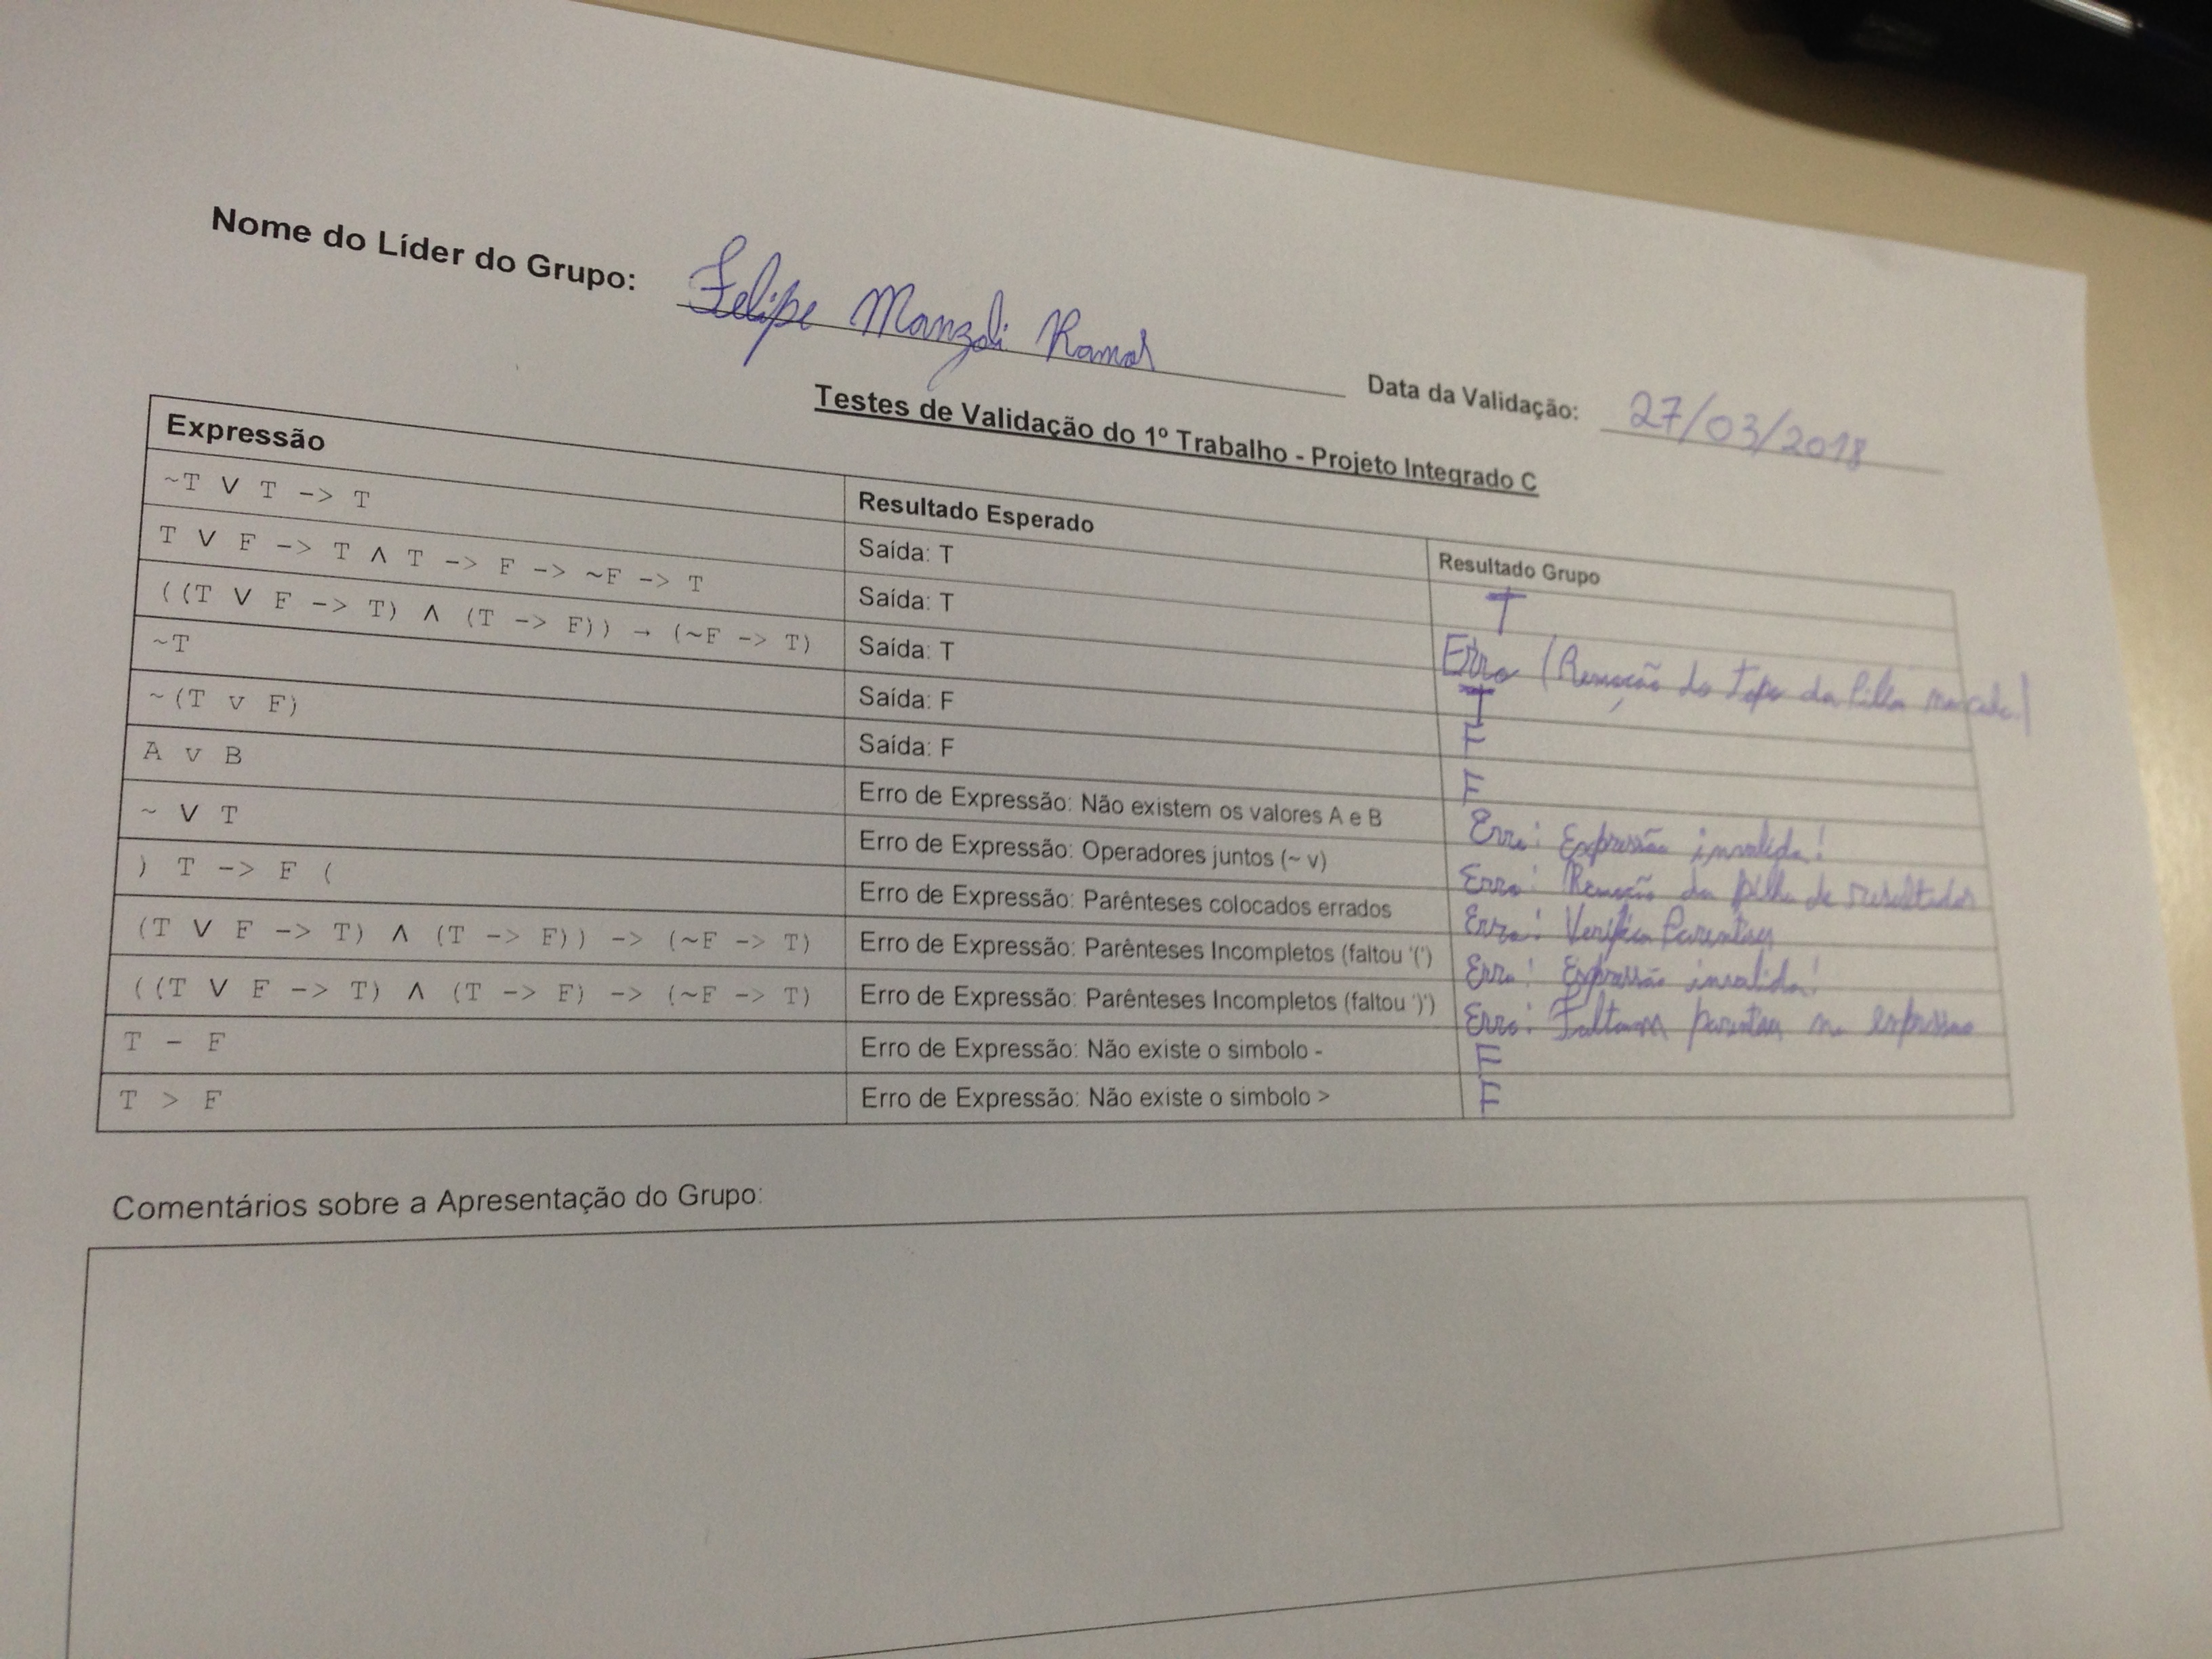 Nome do Líder do Grupo: Felipe Manzoli Ramos Data da Validação: 27/03/2018
Testes de Validação do 1º Trabalho - Projeto Integrado C
Expressão Resultado Esperado Resultado Grupo
~T V T -> T Saída: T T
T V F -> T Λ T -> F -> ~F -> T Saída: T Erro (Remoção do topo da pilha
((T V F -> T) Λ (T -> F)) → (~F -> T) Saída: T T
~T Saída: F F
~(T v F) Saída: F F
A v B Erro de Expressão: Não existem os valores A e B Erro: Expressão invalida!
~ V T Erro de Expressão: Operadores juntos (~ v) Erro: Remoção da pilha de resultados
) T -> F ( Erro de Expressão: Parênteses colocados errados Erro: Verifica Parenteses
(T V F -> T) Λ (T -> F)) -> (~F -> T) Erro de Expressão: Parênteses Incompletos (faltou '(') Erro: Expressão invalida!
((T V F -> T) Λ (T -> F) -> (~F -> T) Erro de Expressão: Parênteses Incompletos (faltou ')') Erro: Faltam parenteses na expressao
T - F Erro de Expressão: Não existe o simbolo - F
T > F Erro de Expressão: Não existe o simbolo > F
Comentários sobre a Apresentação do Grupo: